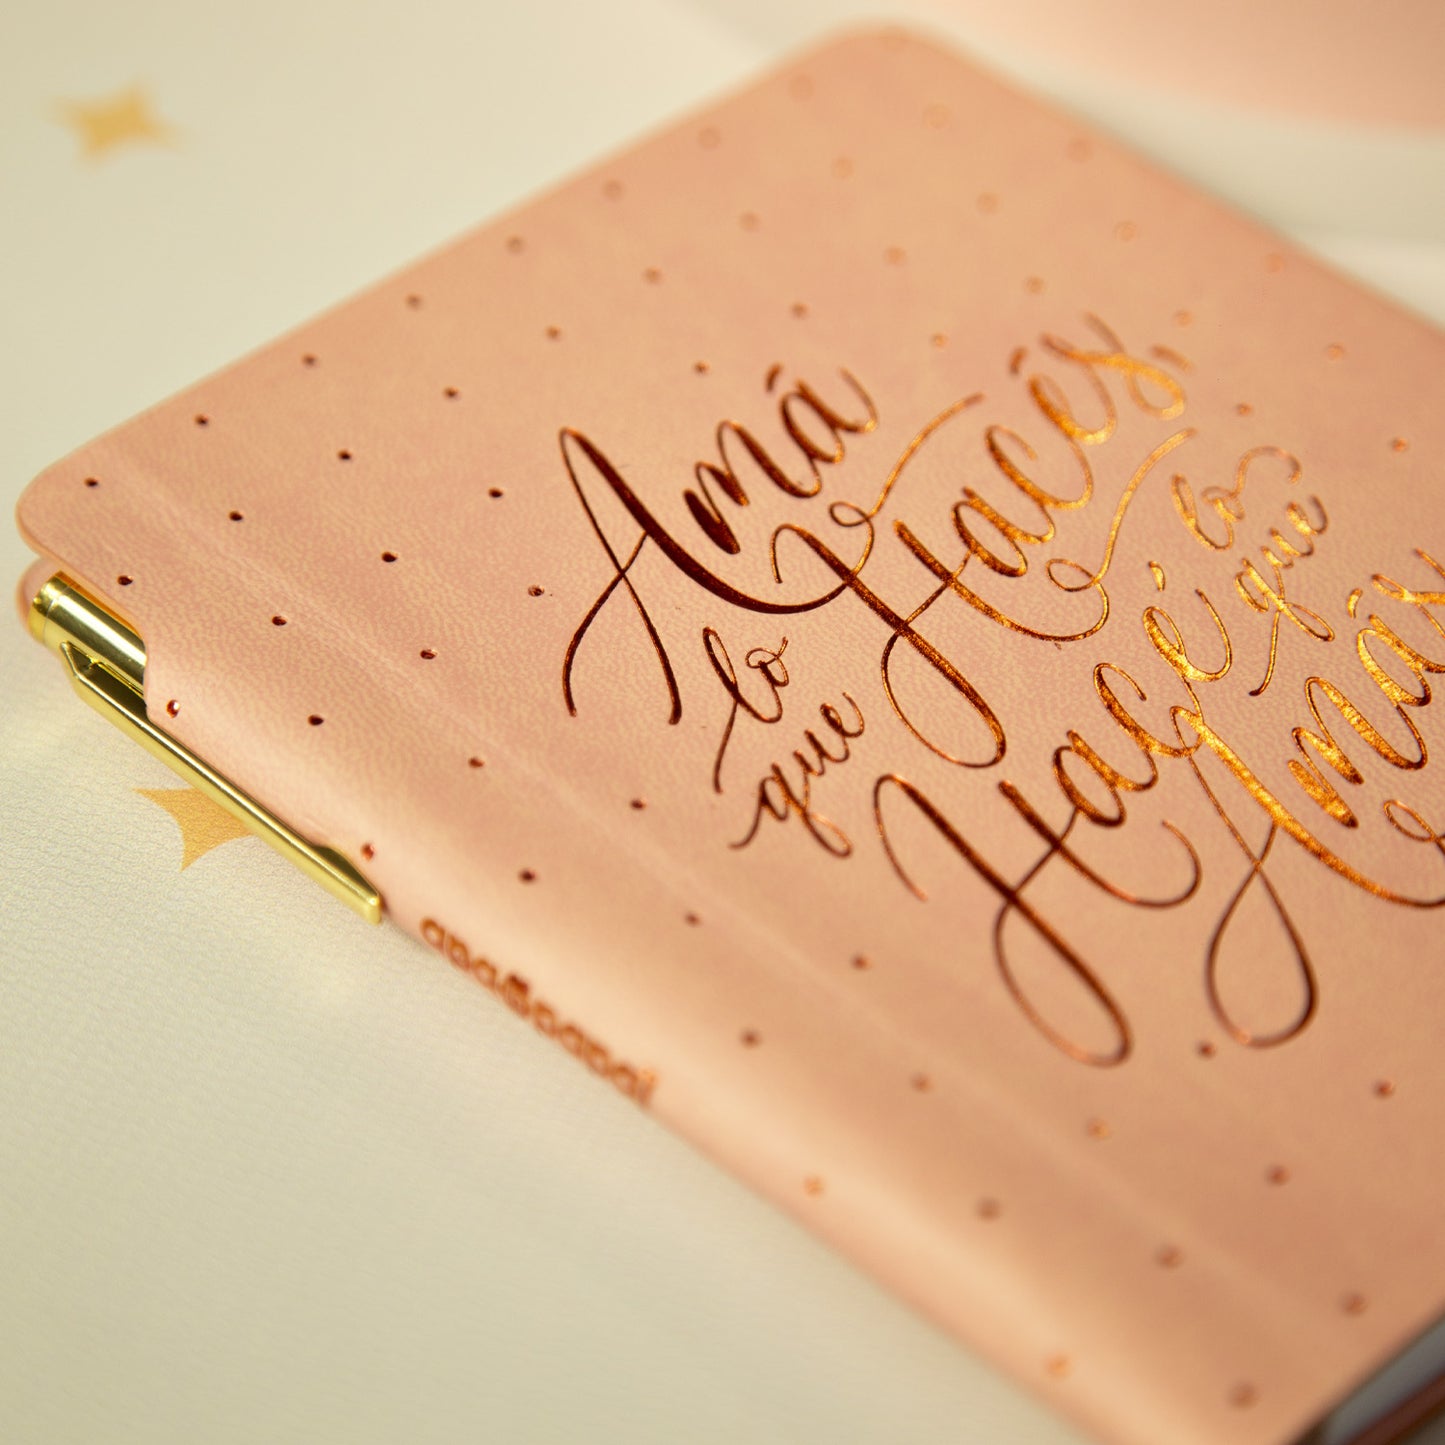 Amá
lo
que
Hacés,
Hacé
lo
que
Amás